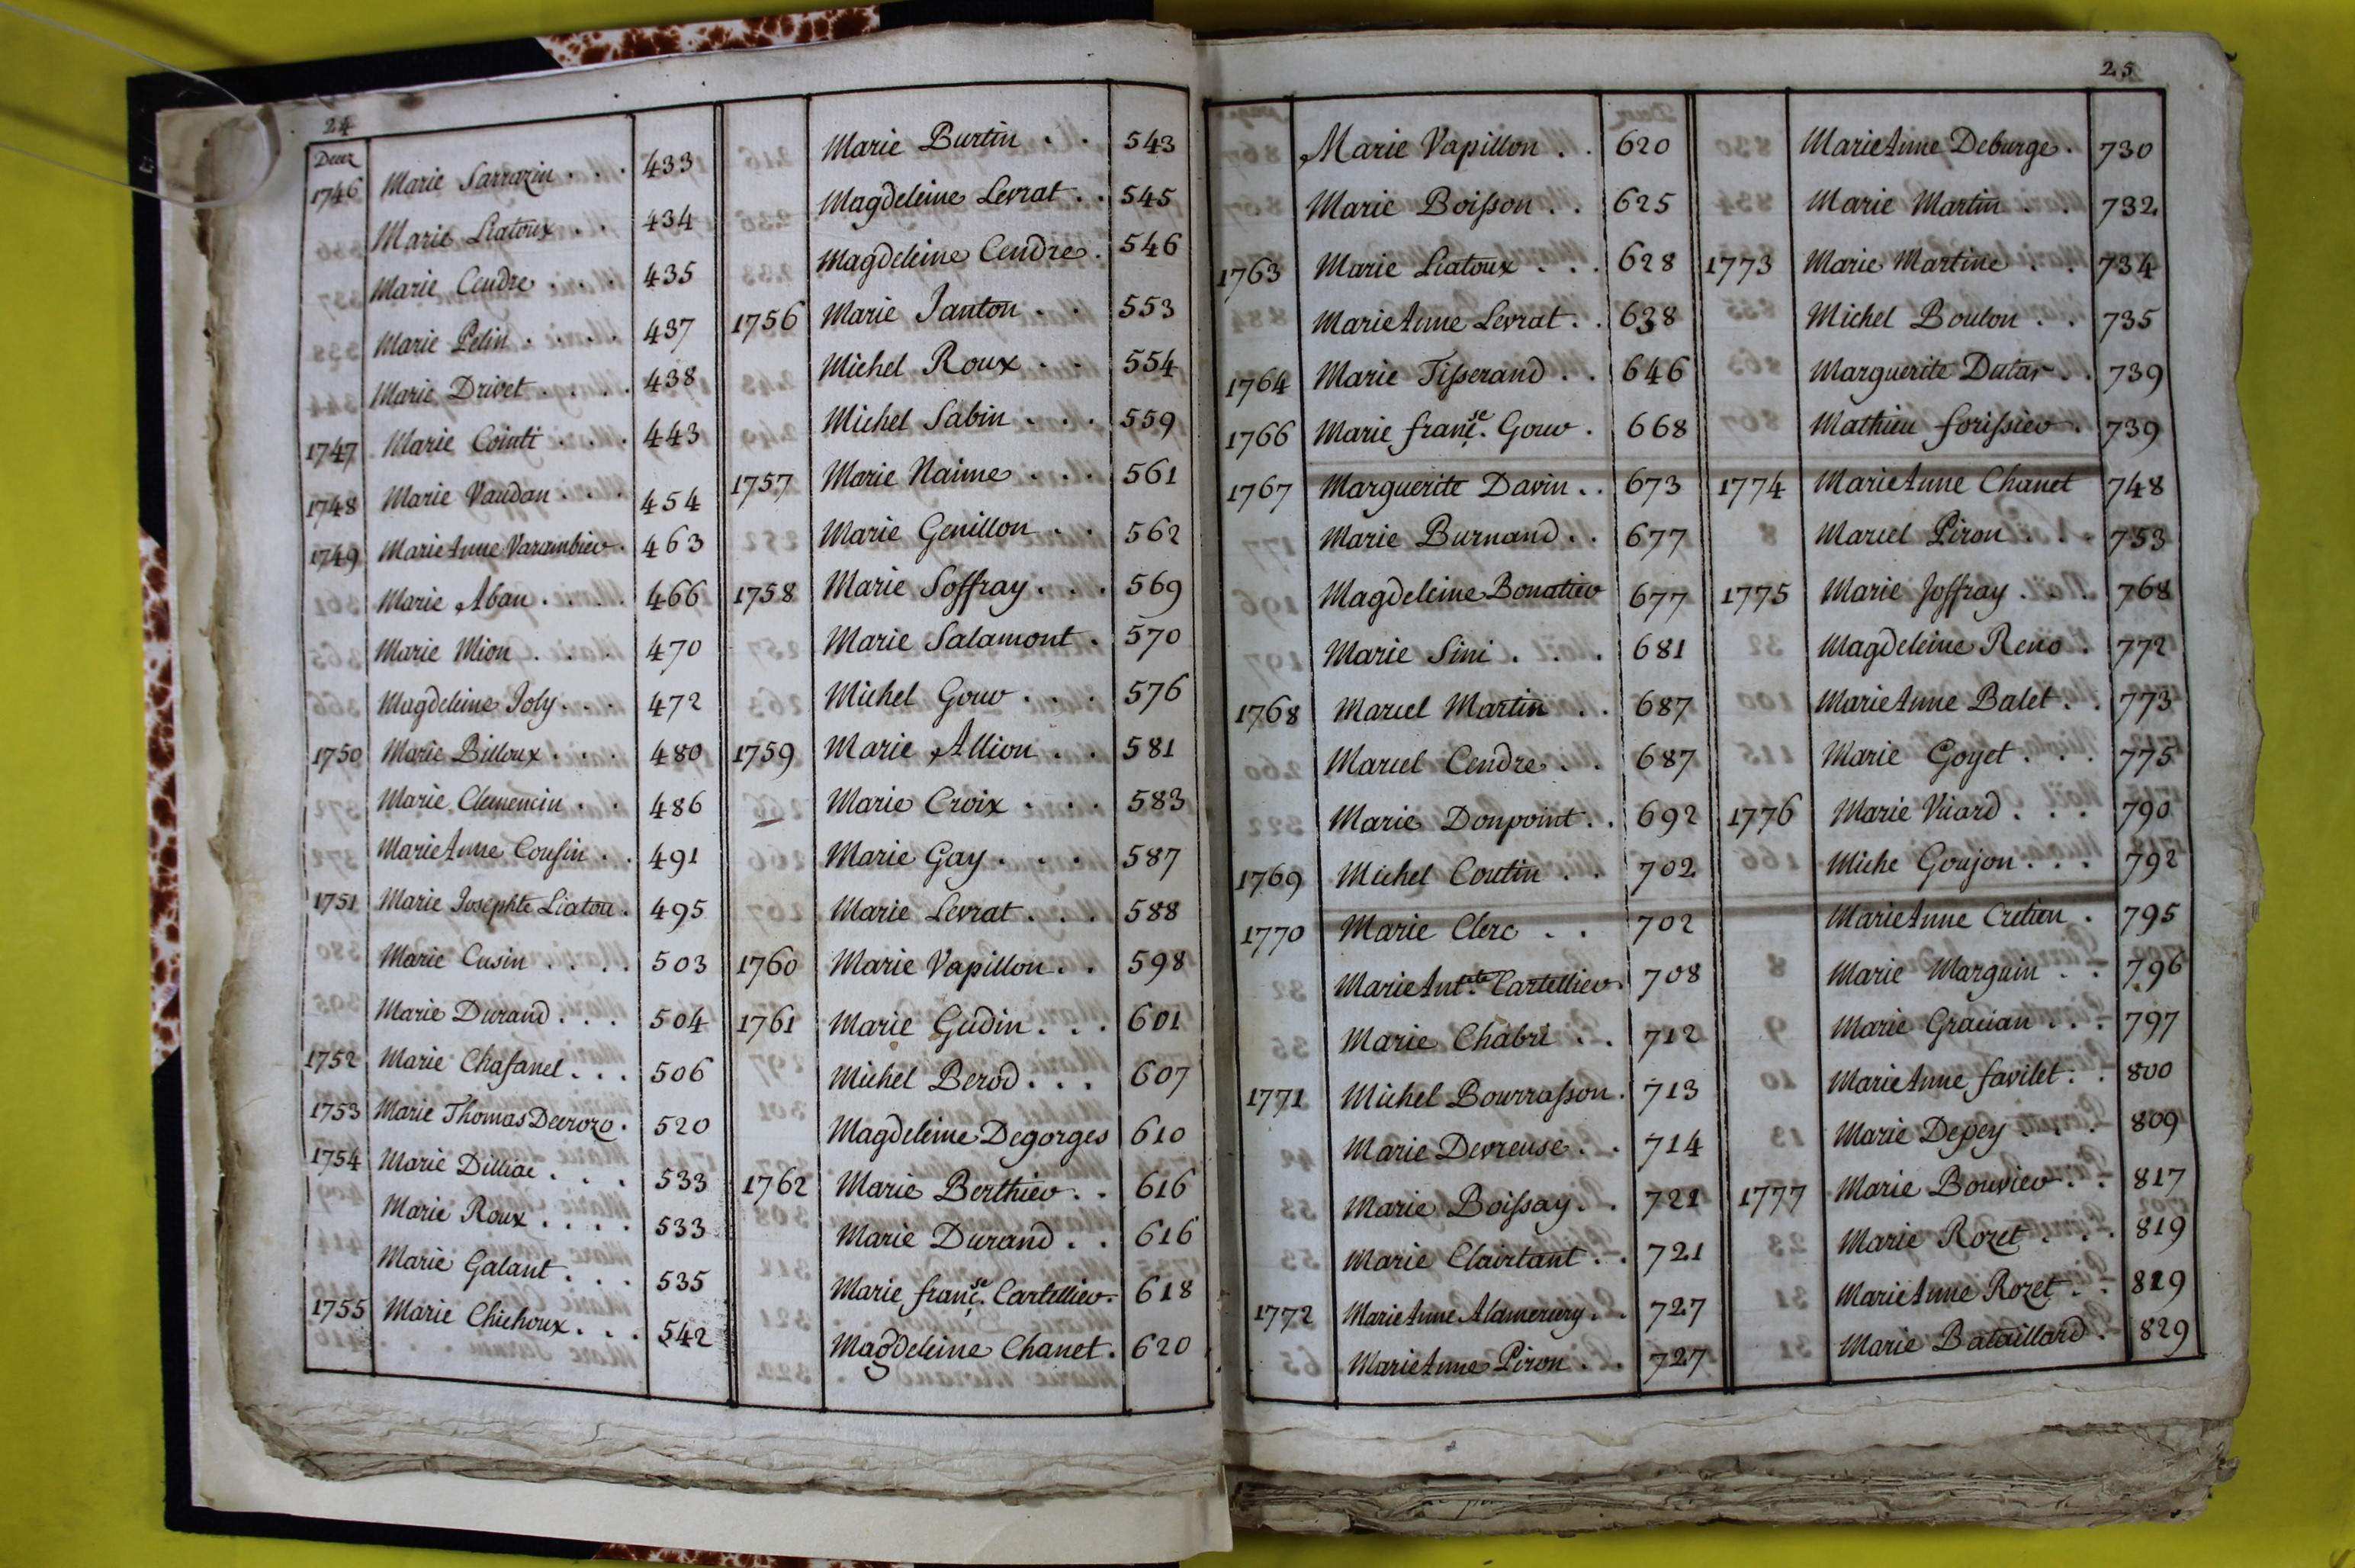 24
Deux
1746 Marie Sarrazin . . . 433
Marie Liatoux . . 434
Marie Cendre . . . 435
Marie Pelin . . . . 437
Marie Drivet . . . . 438
1747 Marie Cointi . . . 443
1748 Marie Vaudan . . . 454
1749 Marie Anne Varambier . 463
Marie Aban . . . . 466
Marie Mion . . . 470
Magdeleine Joly . . . 472
1750 Marie Billoux . . . 480
Marie Clemencin . . 486
Marie Anne Cousin . . 491
1751 Marie Josephte Liatou . 495
Marie Cusin . . . . 503
Marie Durand . . . 504
1752 Marie Chasanel . . . 506
1753 Marie Thomas Decrozo . 520
1754 Marie Dilliac . . . 533
Marie Roux . . . . 533
Marie Galant . . . 535
1755 Marie Chichoux . . . 542
Marie Burtin . . 543
Magdeleine Levrat . . 545
Magdeleine Cendre . 546
1756 Marie Janton . . 553
Michel Roux . . 554
Michel Sabin . . . 559
1757 Marie Naime . . . 561
Marie Genillon . . 562
1758 Marie Soffray . . . 569
Marie Salamont . 570
Michel Gour . . . 576
1759 Marie Allion . . 581
Marie Croix . . . 583
Marie Gay . . . 587
Marie Levrat . . . 588
1760 Marie Vapillon . . 598
1761 Marie Gudin . . . 601
Michel Berod . . . 607
Magdeleine Degorges 610
1762 Marie Berthier . . 616
Marie Durand . . 616
Marie franç.se Cartellier . 618
Magdeleine Chanet . 620
25
Marie Vapillon . . 620
Marie Boisson . . 625
1763 Marie Liatoux . . . 628
Marie Anne Levrat . . 638
1764 Marie Tisserand . . 646
1766 Marie franç.se Gour . 668
1767 Marguerite Davin . . 673
Marie Burnand . . 677
Magdeleine Bonatier 677
Marie Sini . . . 681
1768 Marcel Martin . . 687
Marcel Cendre . . 687
Marie Donpoint . . 692
1769 Michel Coutin . . 702
1770 Marie Clerc . . 702
Marie Ant.te Cartellier . 708
Marie Chabri . . 712
1771 Michel Bourrasson . 713
Marie Devreuse . . 714
Marie Boissay . . 721
Marie Clairtant . . 721
1772 Marie Anne Alamercery . . 727
Marie Anne Piron . . 727
Marie Anne Deburge . 730
Marie Martin . . 732
1773 Marie Martine . . 734
Michel Boulon . . 735
Marguerite Dutar . . 739
Mathieu forissier . 739
1774 Marie Anne Chanet 748
Marcel Piron . . . 753
1775 Marie Joffray . . . 768
Magdeleine Reno . 772
Marie Anne Balet . . 773
Marie Goyet . . . 775
1776 Marie Viard . . . 790
Miche Goujon . . . 792
Marie Anne Cretien . 795
Marie Marguin . . 796
Marie Gracian . . . 797
Marie Anne favilet . . 800
Marie Depey . . . 809
1777 Marie Bouvier . . 817
Marie Rozet . . . 819
Marie Anne Rozet . . 819
Marie Bataillard . 829